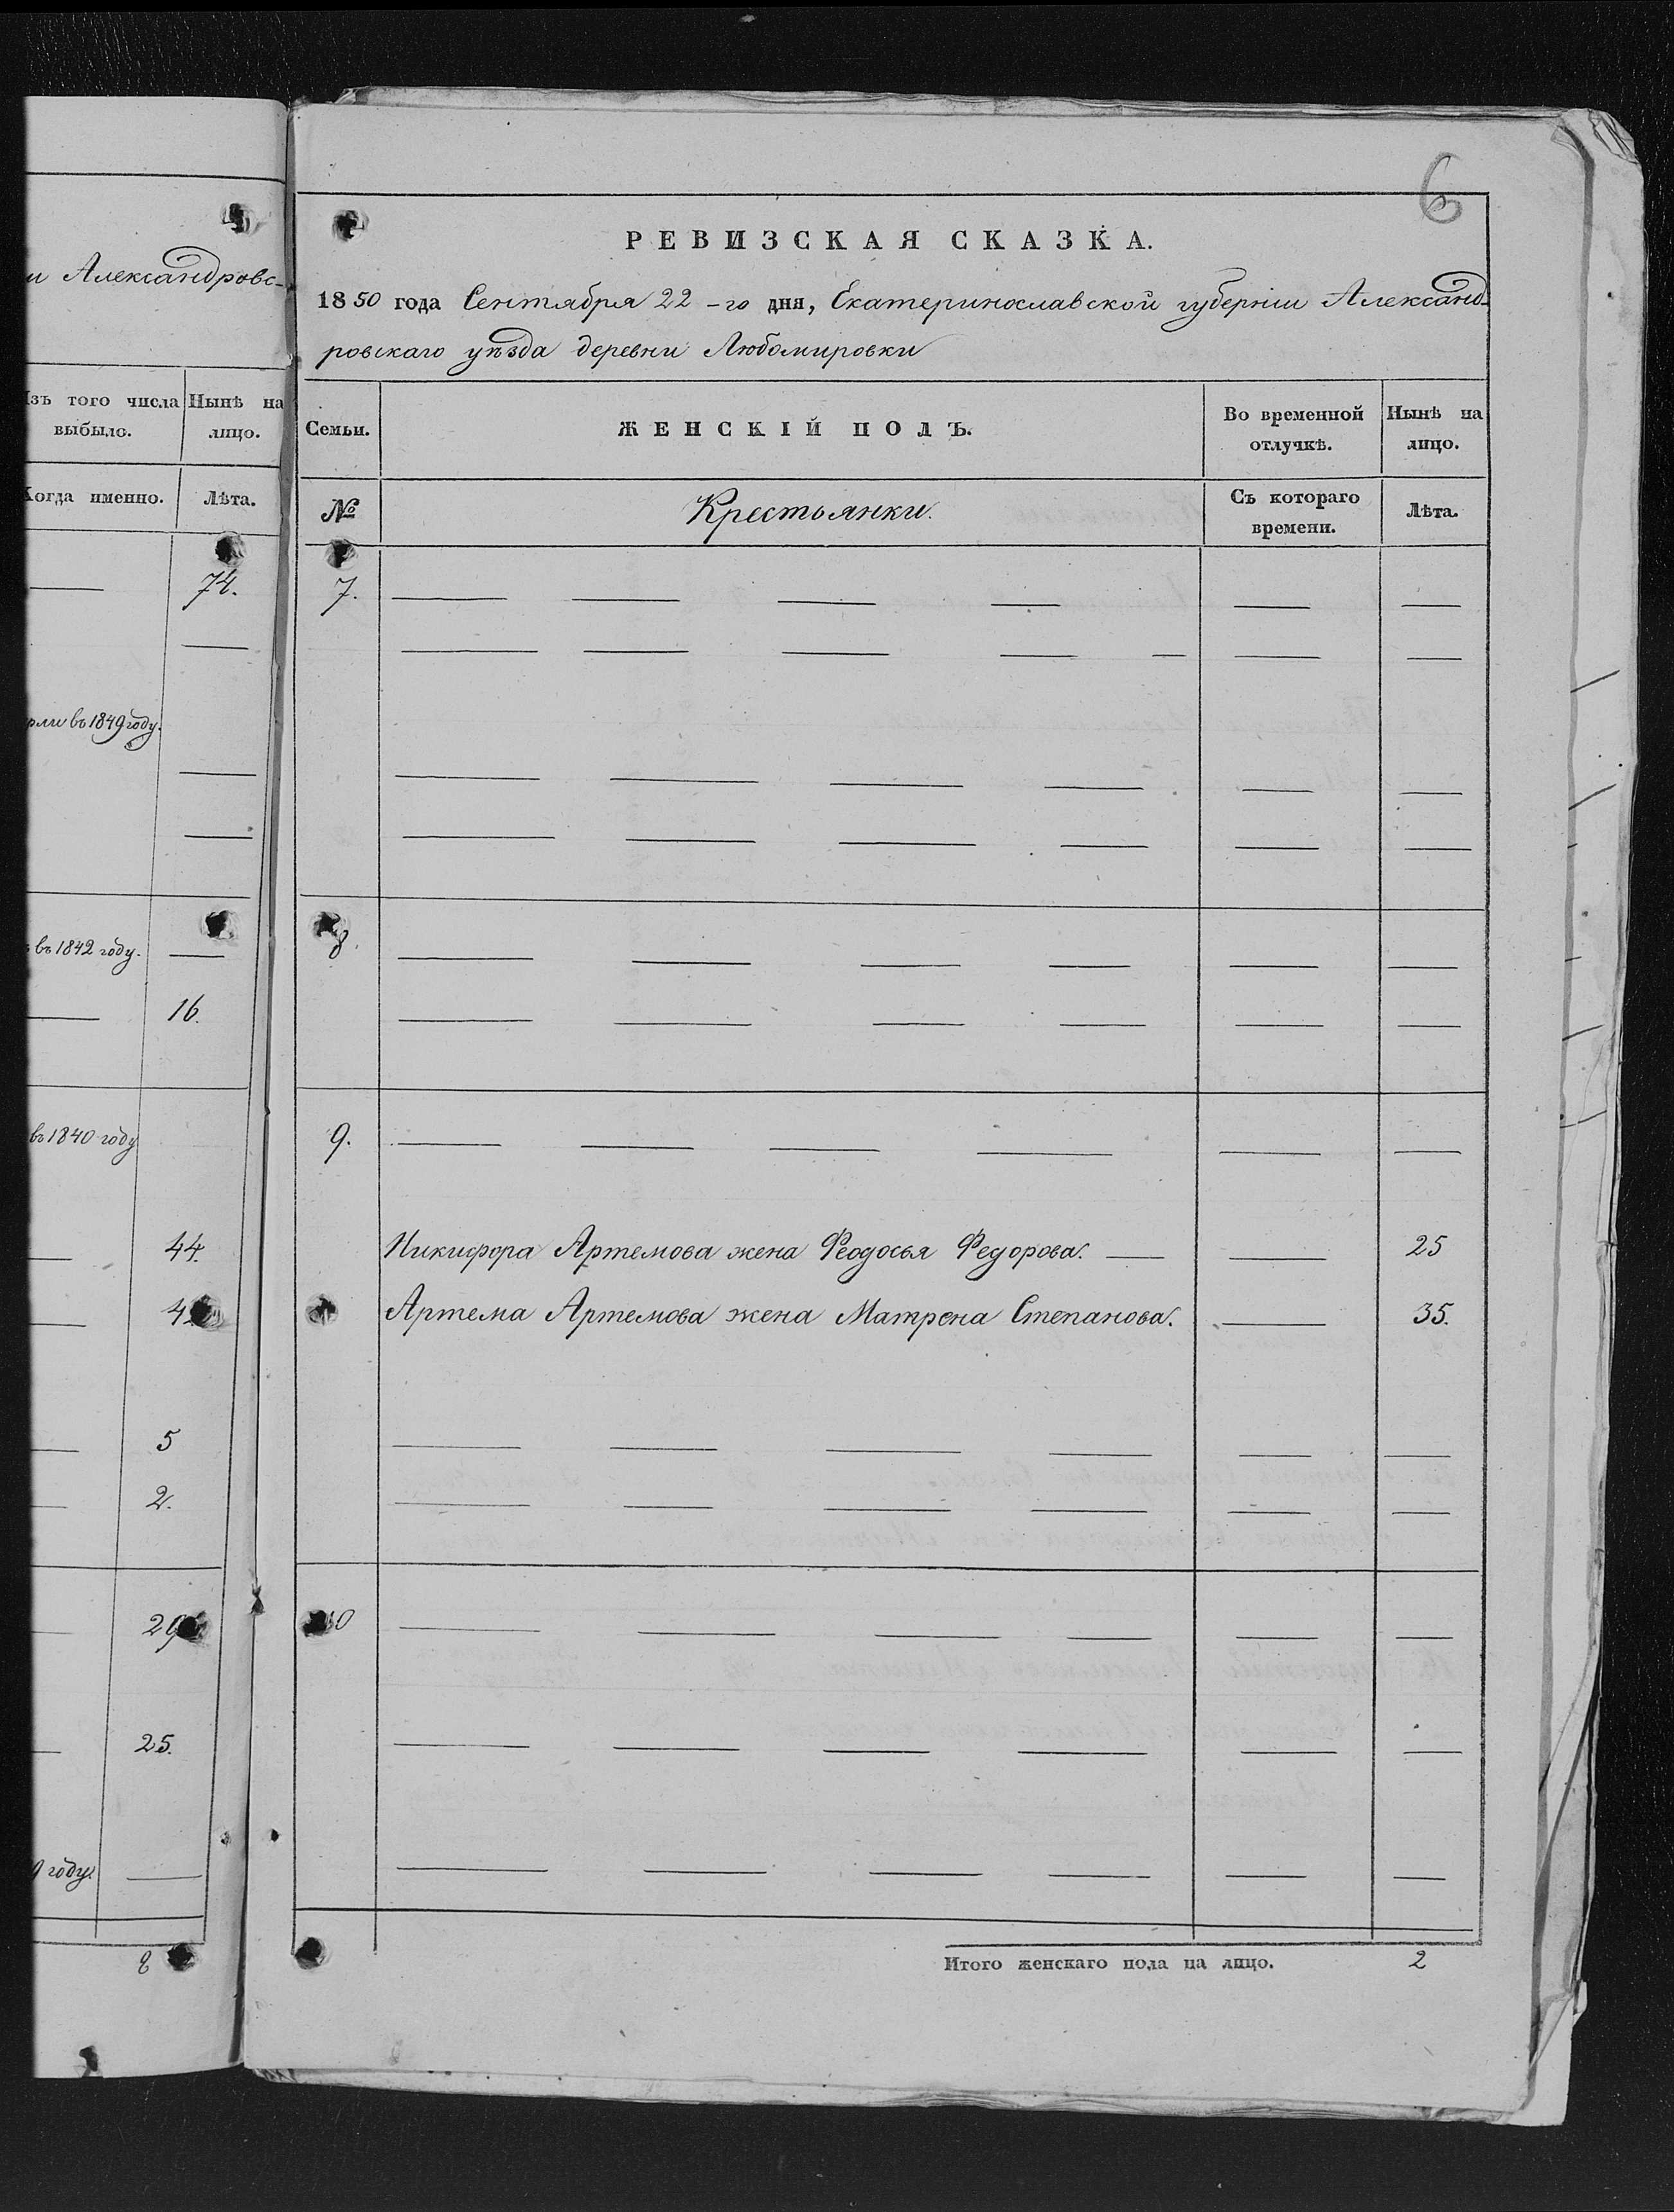 и Александровс-
Изъ того числа
выбыло.
Ныне на
лицо.
Когда именно.
Лѣта.
74.
въ 1849 году.
въ 1842 году.
16.
въ 1840 году
44.
5
2.
25.
году.
8
6
РЕВИЗСКАЯ СКАЗКА.
1850 года Сентября 22-го дня, Екатеринославской губерніи Александ-
ровскаго уѣзда деревни Любомировки
Семьи.
ЖЕНСКІЙ ПОЛЪ.
Во временной
отлучкѣ.
Нынѣ на
лицо.
№
Крестьянки.
Съ котораго
времени.
Лѣта.
7.
8.
9.
Никифора Артемова жена Феодосья Федорова. 25
Артема Артемова жена Матрена Степанова. 35.
10
Итого женскаго пола на лицо. 2